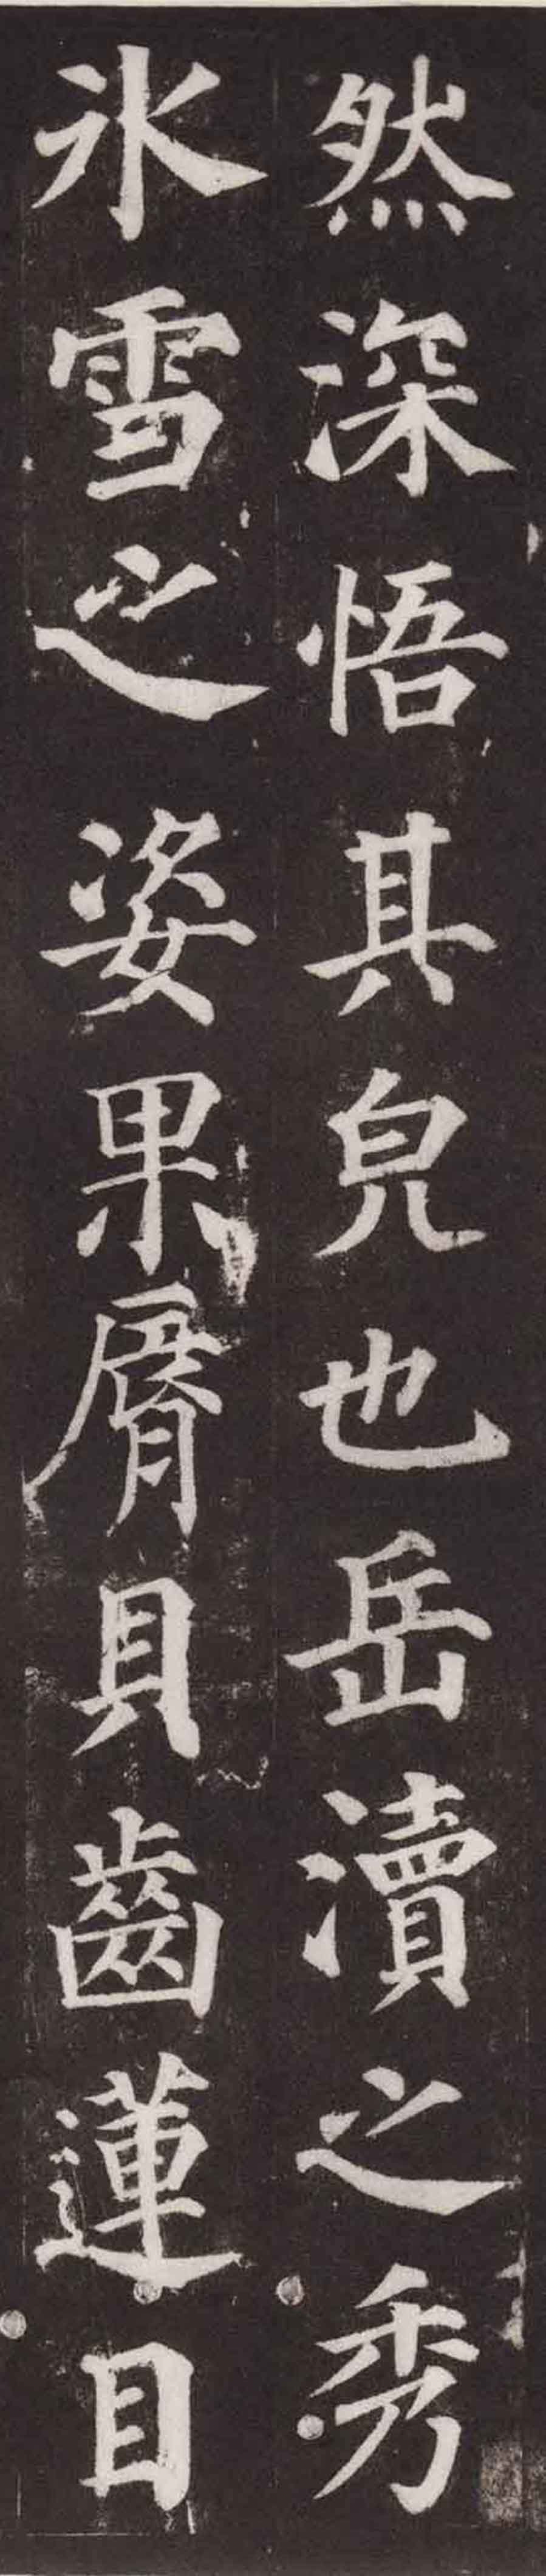 然深悟其皃也岳瀆之秀
氷雪之姿果脣貝齒蓮目